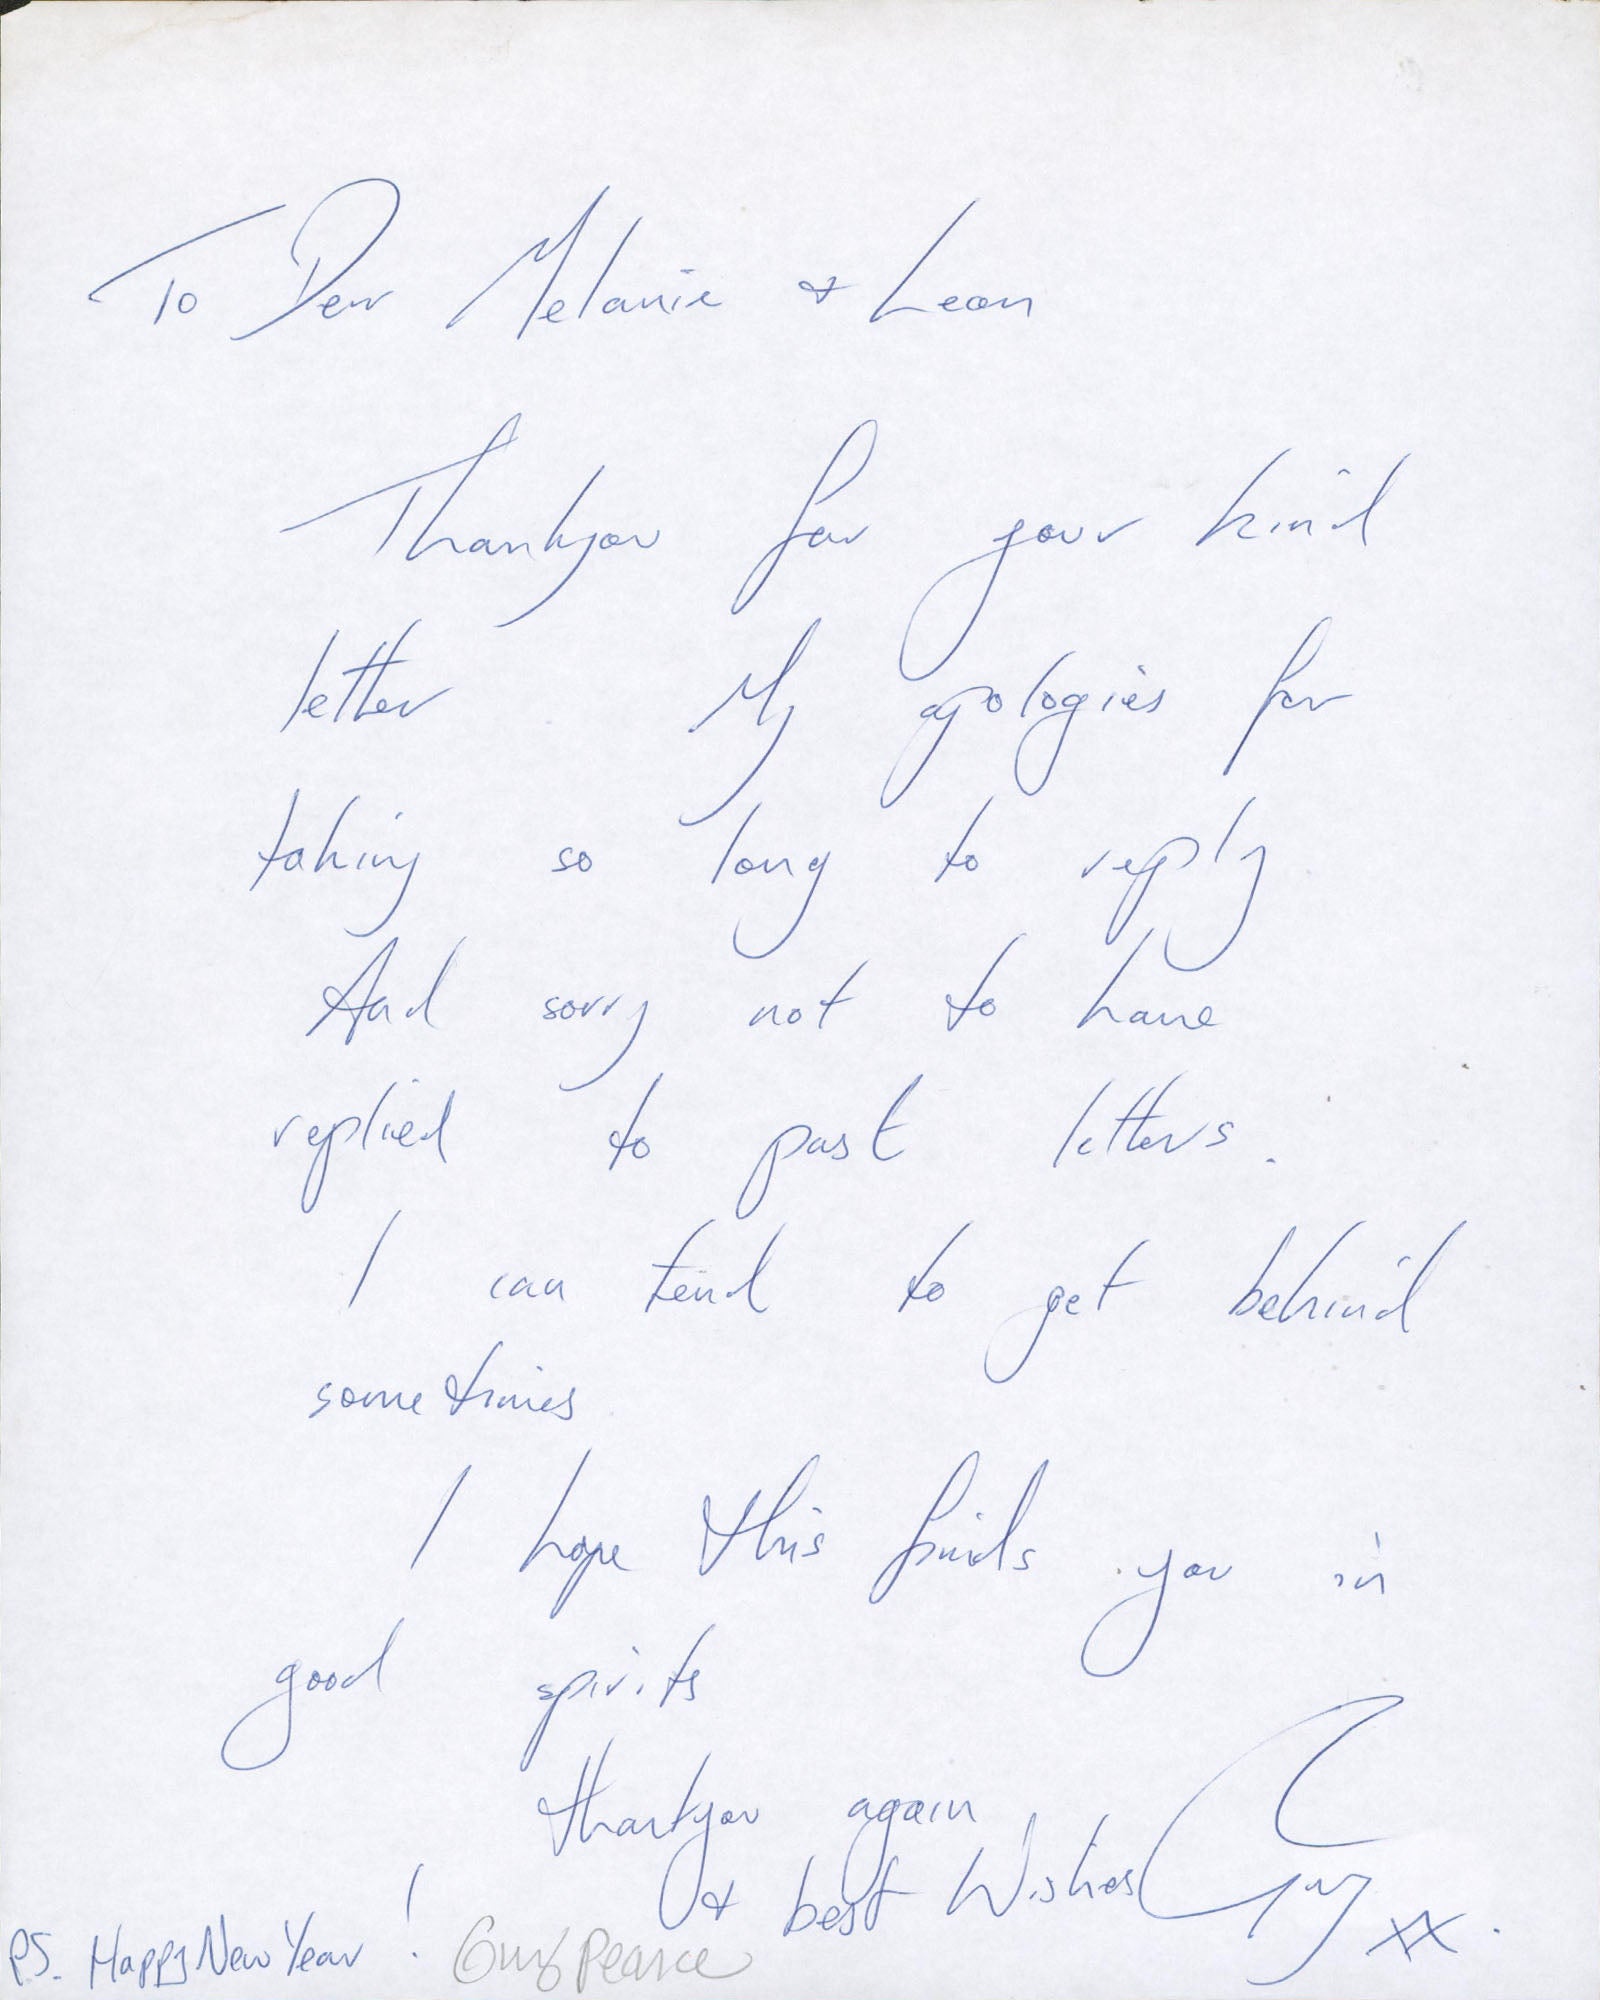 To Dear Melanie & Leon
Thankyou for your kind
letter My apologies for
taking so long to reply
And sorry not to have
replied to past letters.
I can tend to get behind
sometimes
I hope this finds you in
good spirits
thankyou again
& best Wishes Guy xx.
P.S. Happy New Year !
Guy Pearce